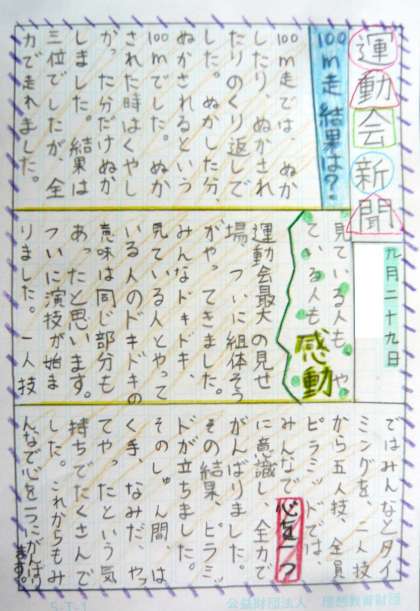 運動会新聞
九月二十九日
100m走 結果は?
100m走では、ぬか
したり、ぬかされ
たりのくり返しで
した。ぬかした分、
ぬかされるという
100mでした。ぬか
された時はくやし
かった分だけぬか
しました。結果は
三位でしたが、全
力で走れました。
見ている人も、やっ
ている人も
感動
運動会最大の見せ
場、ついに組体そう
がやってきました。
みんなドキドキ、
見ている人とやって
いる人のドキドキの
意味は同じ部分も
あったと思います。
ついに演技が始ま
りました。一人技
ではみんなとタイ
ミングを、二人技
から五人技、全員
ピラミッドでは、
みんなで心を一つ
に意識し、全力で
がんばりました。
その結果、ピラミッ
ドが立ちました。
そのしゅん間は
く手、なみだ、やっ
てやったという気
持ちでたくさんで
した。これからもみ
んなで心を一つにがんばり
ます。
公益財団法人 理想教育財団